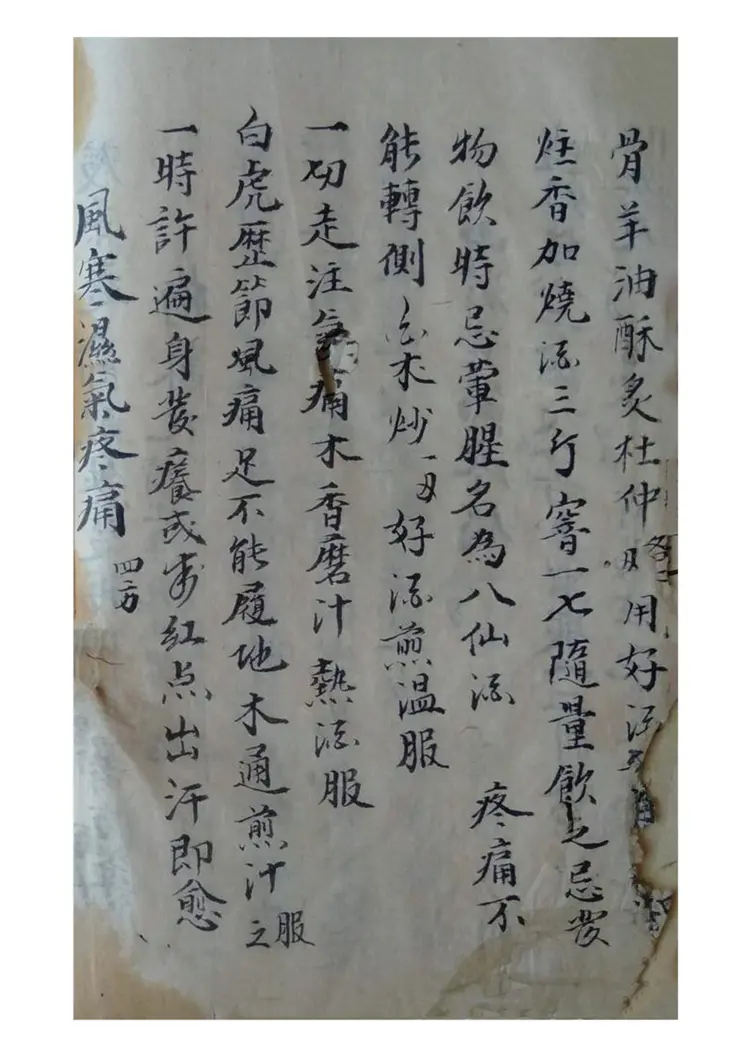 骨羊油酥炙杜仲各二刄用好酒
炷香加燒酒三斤窨一七隨量飲之忌發
物飲時忌葷腥名為八仙酒 疼痛不
能轉側白朮炒一刄好酒煎温服
一切走注氣痛木香磨汁熱酒服
白虎歷節風痛足不能履地木通煎汁服之
一時許遍身發癢或步紅点出汗即愈
風寒濕氣疼痛 四方